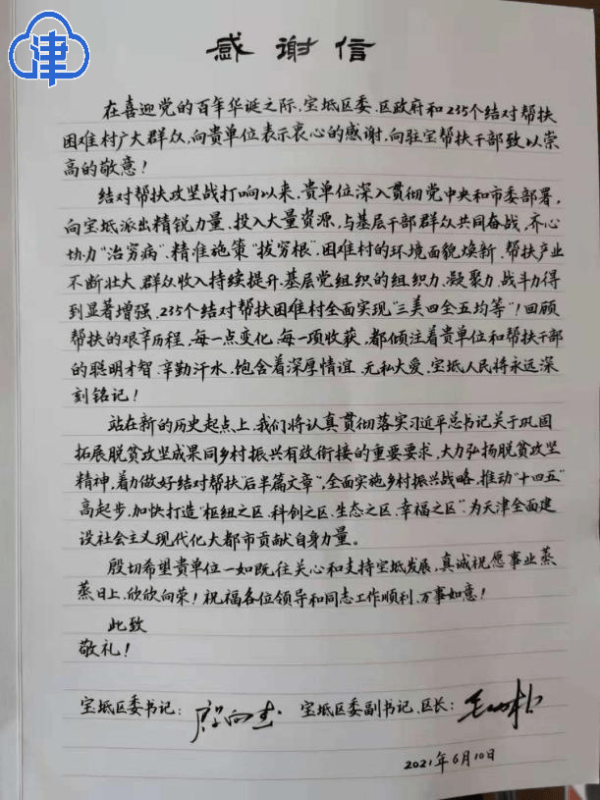 津
感谢信
在喜迎党的百年华诞之际,宝坻区委、区政府和235个结对帮扶
困难村广大群众,向贵单位表示衷心的感谢,向驻宝帮扶干部致以崇
高的敬意!
结对帮扶攻坚战打响以来,贵单位深入贯彻党中央和市委部署,
向宝坻派出精锐力量,投入大量资源,与基层干部群众共同奋战,齐心
协力“治穷病”,精准施策“拔穷根”,困难村的环境面貌焕新,帮扶产业
不断壮大,群众收入持续提升,基层党组织的组织力、凝聚力、战斗力得
到显著增强,235个结对帮扶困难村全面实现“三美四全五均等”!回顾
帮扶的艰辛历程,每一点变化,每一项收获,都倾注着贵单位和帮扶干部
的聪明才智、辛勤汗水,饱含着深厚情谊、无私大爱,宝坻人民将永远深
刻铭记!
站在新的历史起点上,我们将认真贯彻落实习近平总书记关于巩固
拓展脱贫攻坚成果同乡村振兴有效衔接的重要要求,大力弘扬脱贫攻坚
精神,着力做好结对帮扶“后半篇文章”,全面实施乡村振兴战略,推动“十四五”
高起步,加快打造“枢纽之区、科创之区、生态之区、幸福之区”,为天津全面建
设社会主义现代化大都市贡献自身力量。
殷切希望贵单位一如既往关心和支持宝坻发展,真诚祝愿事业蒸
蒸日上、欣欣向荣!祝福各位领导和同志工作顺利、万事如意!
此致
敬礼!
宝坻区委书记:殷向杰 宝坻区委副书记、区长:
2021年6月10日